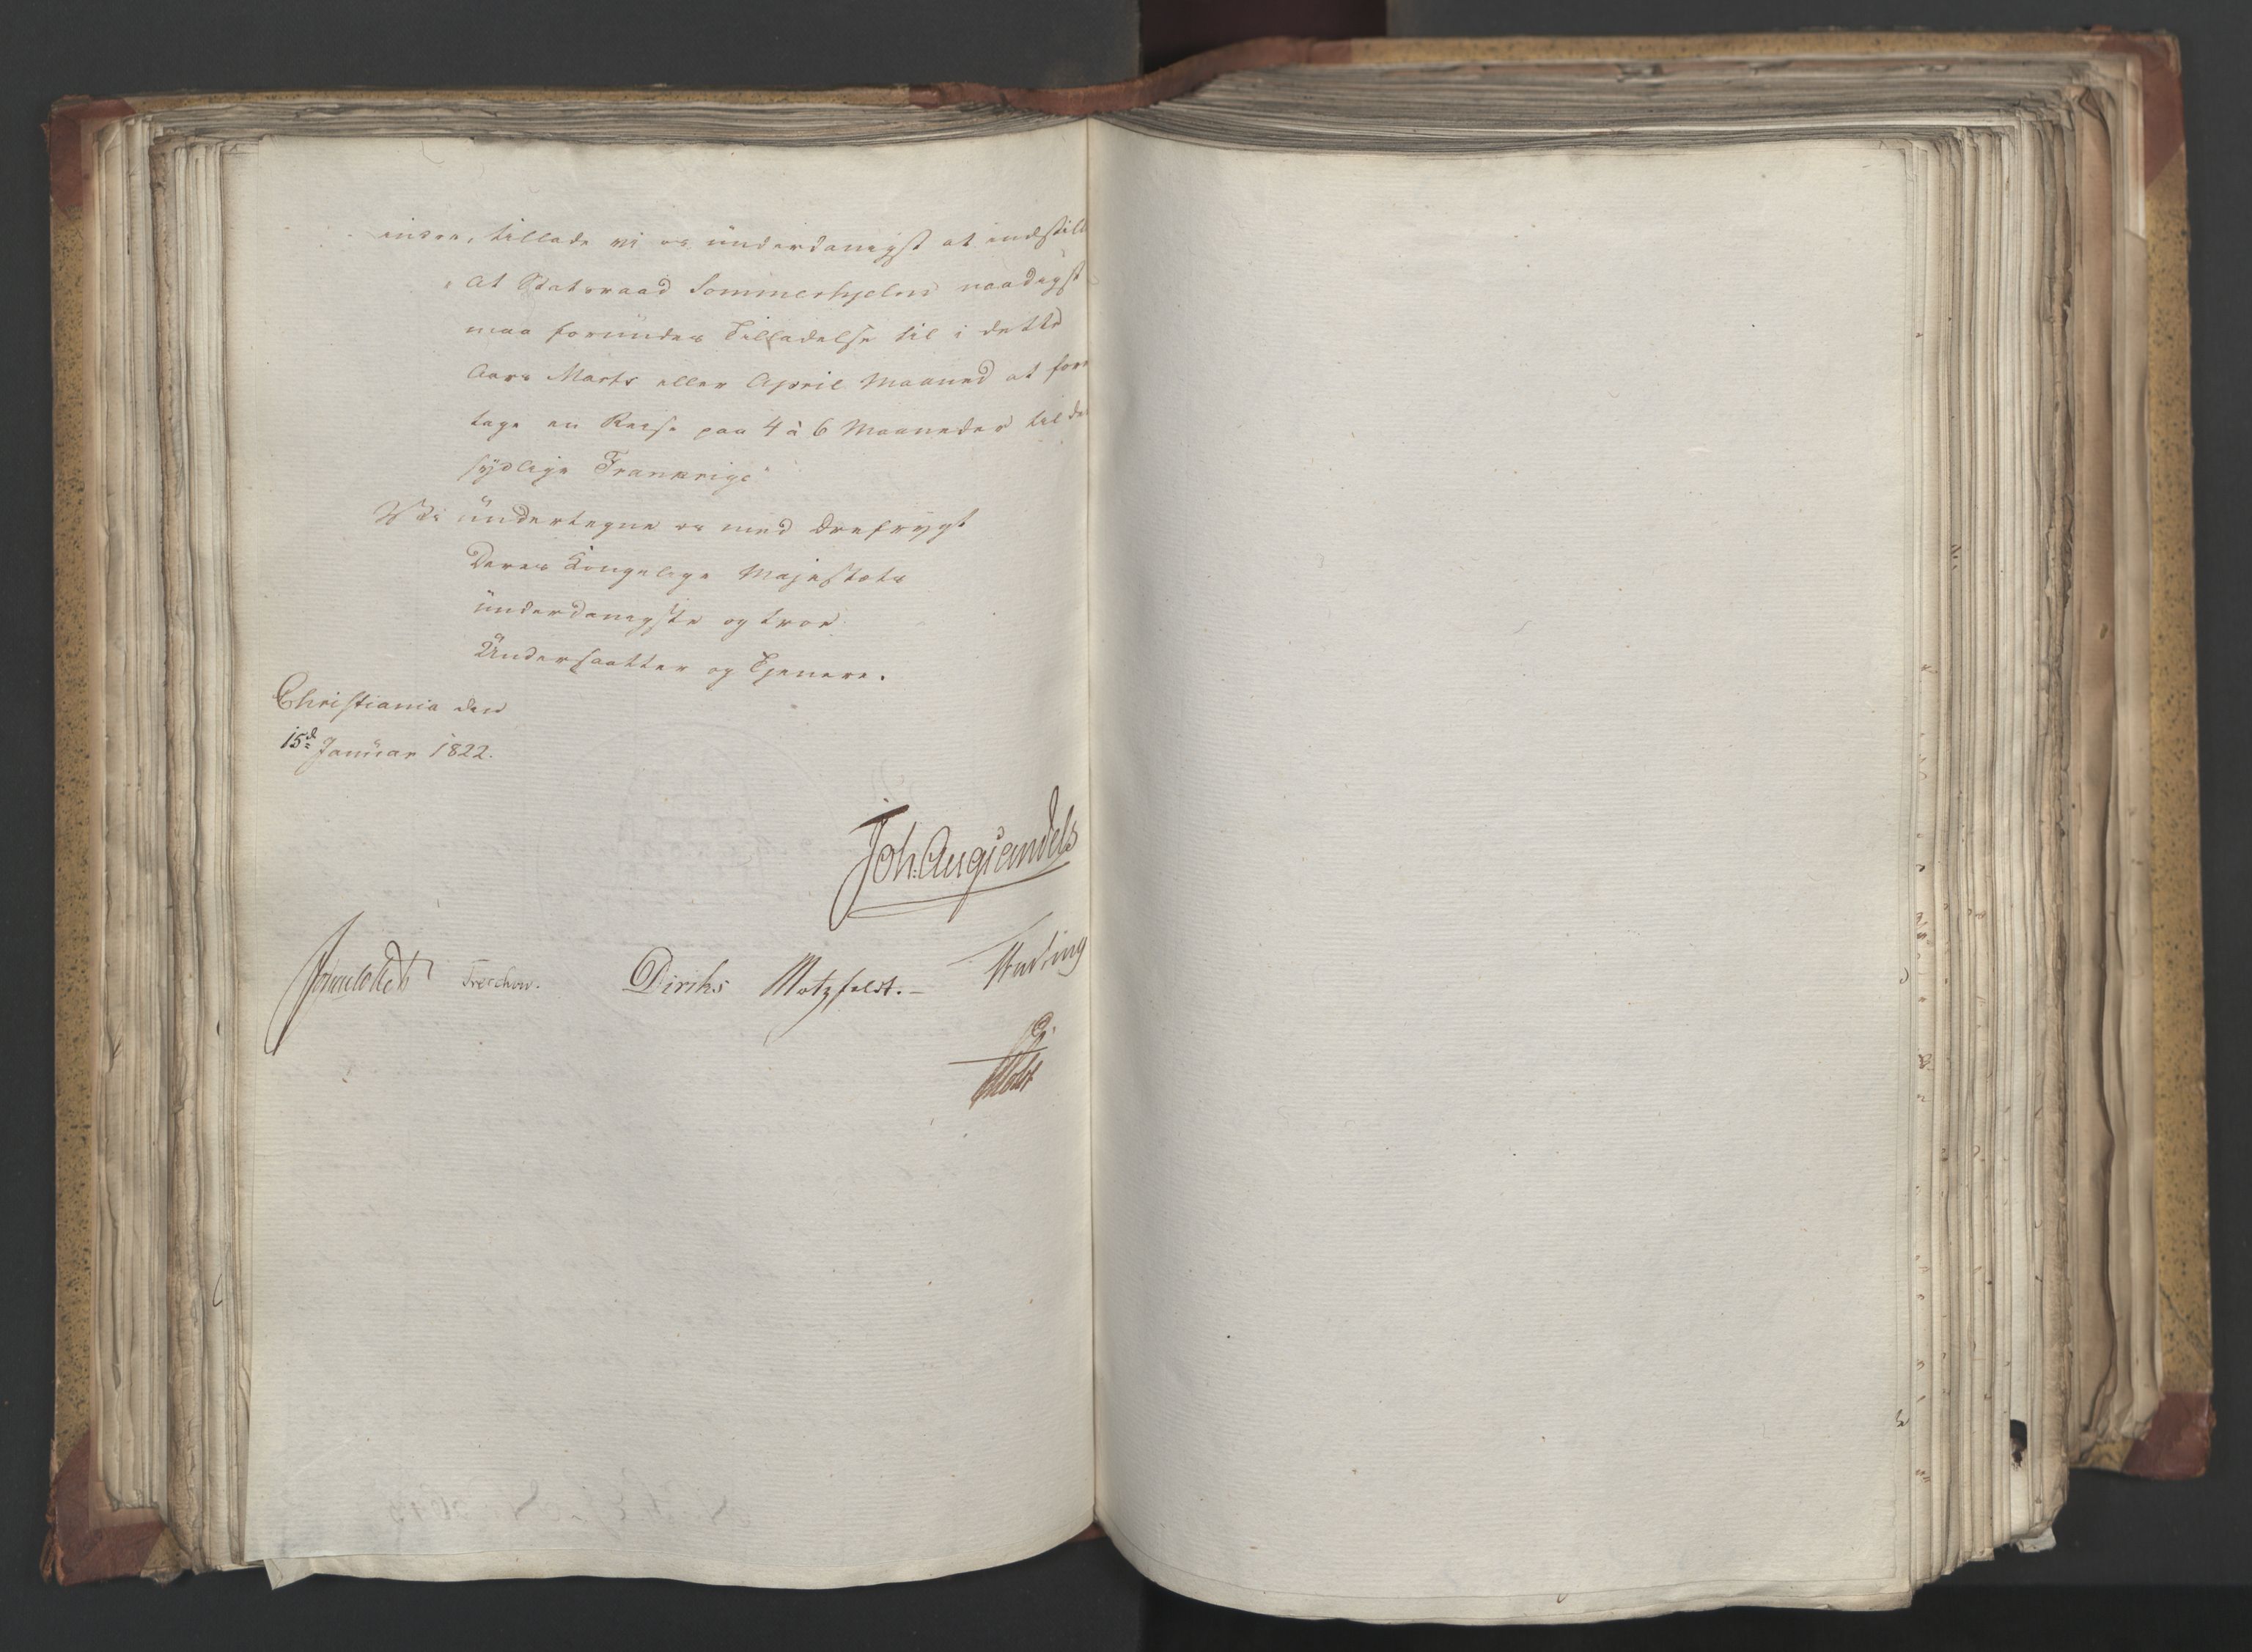 inden, tillade vi os ünderdanigst at indstill
"At Statsraad Sommerhjelm naadigst
maa forundes Tilladelse til i dette
Aars Marts eller April Maaned at fore
tage en Reise paa 4 à 6 Maaneder til de
sydlige Frankrige"
Vi ündertegne os med Ærefrygt
Deres Kongelige Majestæts
ünderdanigste og troe
Ündersaatter og Tjenere.
Christiania den
15d Januar 1822.
Joh: Aug: Sandels
Treschow. Diriks Motzfeldt.